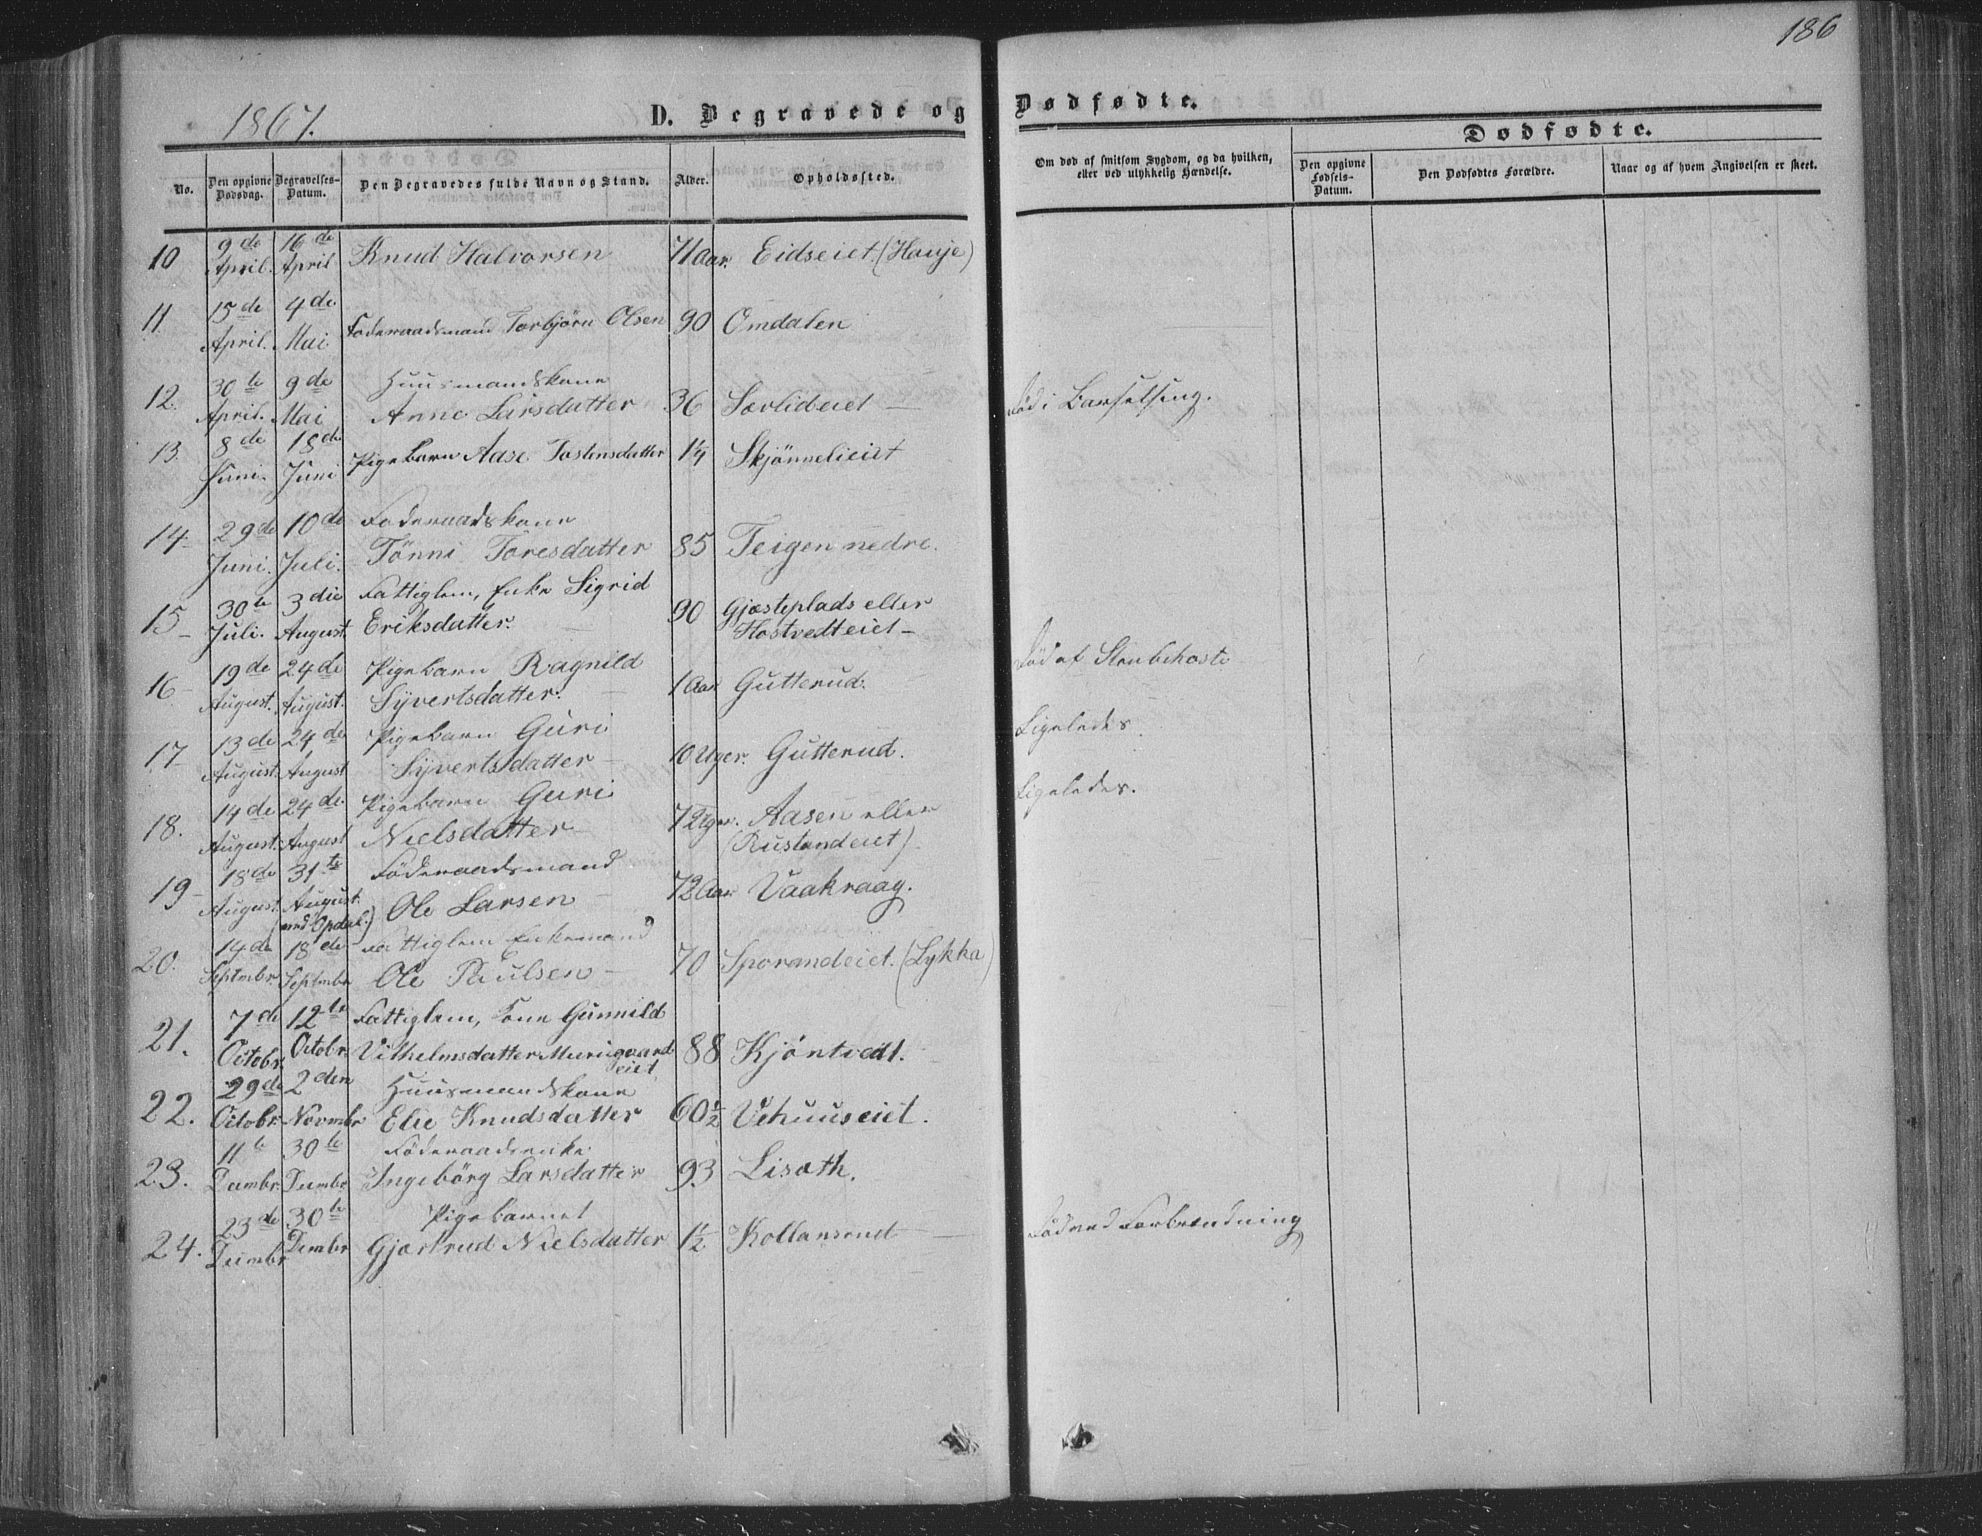 186
1867.
D. Begravede og Dødfødte.
Dødfødte.
No.
Den opgivne Dødsdag.
Begravelses-Datum.
Den Begravedes fulde Navn og Stand.
Alder.
Opholdssted.
Om død af smitsom Sygdom, og da hvilken, eller ved ulykkelig Hændelse.
Den opgivne Fødsels-Datum.
Den Dødfødtes Forældre.
Naar og af hvem Angivelsen er skeet.
10 9de April. 16de April Knud Halvorsen 71 Aar. Eidseiet.
11 15de April. 4de Mai Föderaadsmand Torbjörn Olsen 90 Omdalen
12. 30te April. 9de Mai Huusmandskone Anne Larsdatter 36 Sævlideiet – Död i Barselseng.
13. 8de Juni. 18de Juni Pigebarn Aase Tostensdatter 1¼ Skjönnelieiet
14. 29de Juni. 10de Juli. Föderaadskone Tönni Toresdatter 85 Teigen nedre.
15 30te Juli. 3die August. Fattiglem, Enke Sigrid Eriksdatter. 90 Gjæsteplads eller Hostvedteiet –
16 19de August. 24de August. Pigebarn Ragnild Syvertsdatter. 1 Aar Gutterud. Död af Strubehoste
17 13de August. 24de August Pigebarn Guri Syvertsdatter 10 Uger. Gutterud. Ligeledes.
18. 14de August. 24de August Pigebarn Guri Nielsdatter 7 Uger. Aasen eller (Rustandeiet). Ligeledes.
19 18de August 31te August. (ved Opdal.) Föderaadsmand Ole Larsen 72 Aar Vaakraag.
20. 14de Septmbr. 18de Septmbr Fattiglem Enkemand Ole Paulsen 70 Sporandeiet. (Lykka)
21. 7de Octobr. 12te Octobr. Fattiglem, Kone Gunnild Vilhelmsdatter Murigaardeiet 88 Kjöntvedt.
22. 29de Octobr. 2den Novmbr Huusmandskone Elie Knudsdatter 60½ Vehuuseiet.
23. 11te Decmbr. 30te Decmbr Föderaadsenke Ingebörg Larsdatter 93 Liseth.
24. 23de Decmbr 30te Decmbr Pigebarnet Gjærtrud Nielsdatter 1½ Kollansrud – Död ved Forbrænding